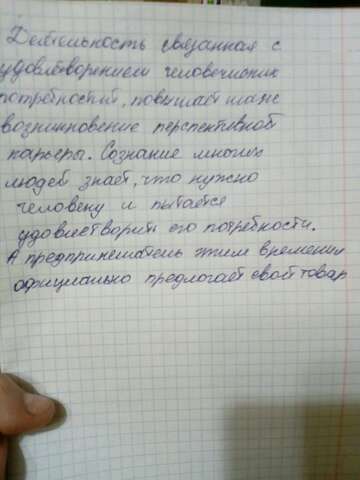 Деятельность связанная с
удовлетворением человеческих
потребностей, повышает шанс
возникновение перспективной
карьеры. Сознание многих
людей знает, что нужно
человеку и пытается
удовлетворить его потребности.
А предприниматель этим временем
официально предлогает свой товар